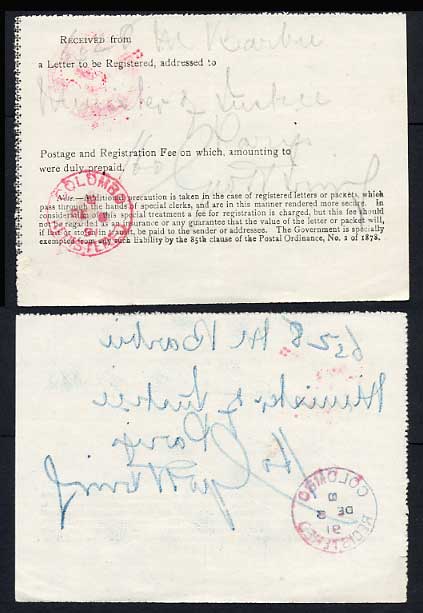 RECEIVED from 6528 M Barbu
a Letter to be Registered, addressed to
Minister & Justice
Paris
Postage and Registration Fee on which, amounting to
were duly prepaid,
COLOMBO
REGISTERED
Note.—Additional precaution is taken in the case of registered letters or packets, which
pass through the hands of special clerks, and are in this manner rendered more secure. In
consideration of this special treatment a fee for registration is charged, but this fee should
not be regarded as an insurance or any guarantee that the value of the letter or packet will,
if lost or stolen in transit, be paid to the sender or addresses. The Government is specially
exempted from any such liability by the 85th clause of the Postal Ordinance, No. 1 of 1878.
6528 M Barbu
Minister & Justice
Paris
COLOMBO
B
DE 2
91
REGISTERED